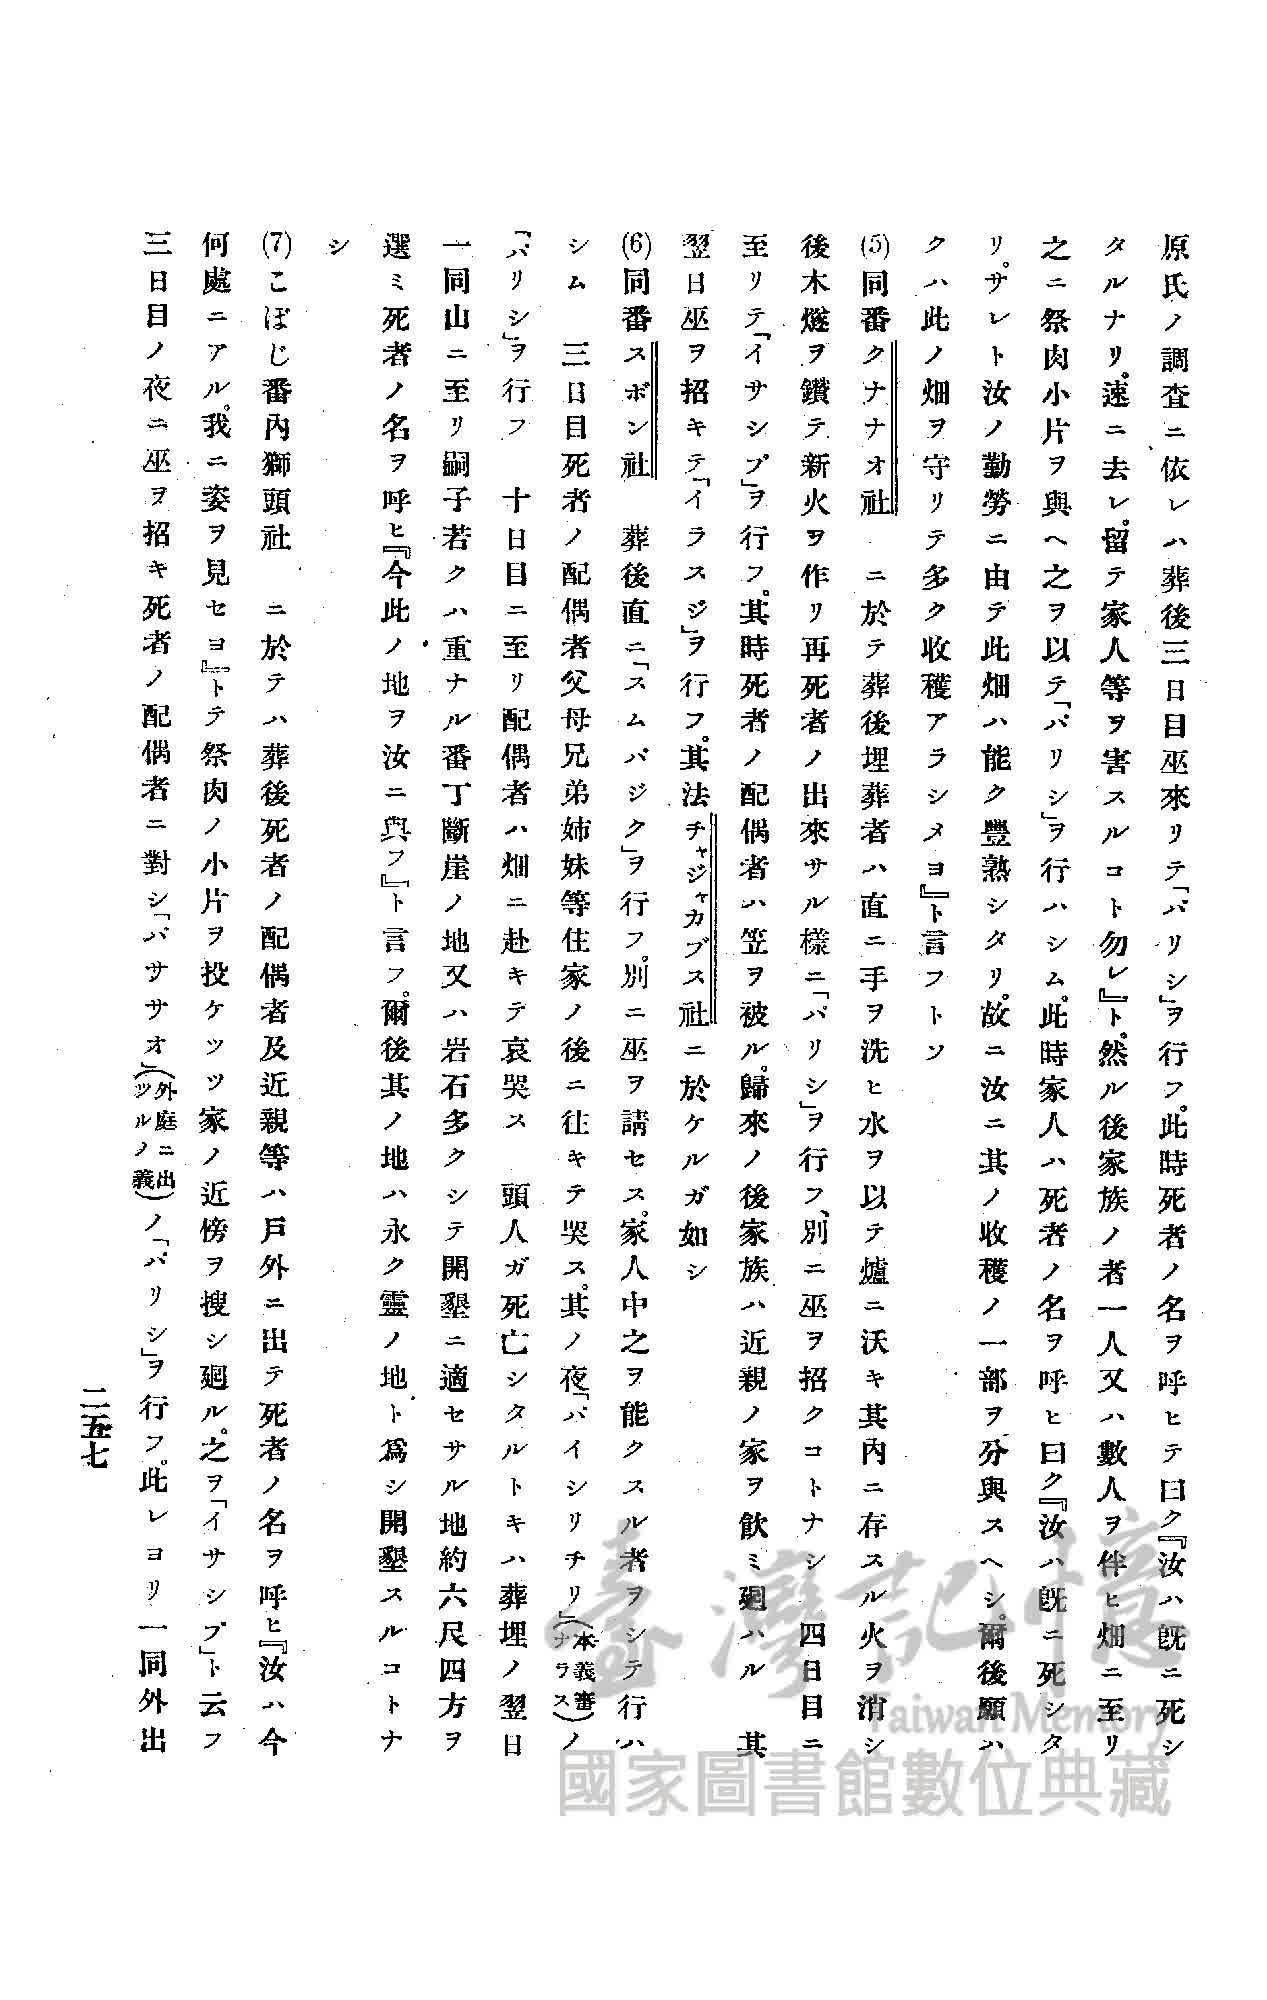 原氏ノ調査ニ依レハ葬後三日目巫來リテ「パリシ」ヲ行フ。此時死者ノ名ヲ呼ヒテ曰ク『汝ハ既ニ死シ
タルナリ。速ニ去レ。留テ家人等ヲ害スルコト勿レ』ト。然ル後家族ノ者一人又ハ數人ヲ伴ヒ畑ニ至リ
之ニ祭肉小片ヲ與ヘ之ヲ以テ「パリシ」ヲ行ハシム。此時家人ハ死者ノ名ヲ呼ヒ曰ク『汝ハ既ニ死シタ
リ。サレト汝ノ勤勞ニ由テ此畑ハ能ク豐熟シタリ。故ニ汝ニ其ノ收穫ノ一部ヲ分與スヘシ。爾後願ハ
クハ此ノ畑ヲ守リテ多ク收穫アラシメヨ』ト言フトソ
(5)同番クナナオ社 ニ於テ葬後埋葬者ハ直ニ手ヲ洗ヒ水ヲ以テ爐ニ沃キ其内ニ存スル火ヲ消シ
後木燧ヲ鑽テ新火ヲ作リ再死者ノ出來サル樣ニ「パリシ」ヲ行フ、別ニ巫ヲ招クコトナシ 四日目ニ
至リテ「イサシプ」ヲ行フ。其時死者ノ配偶者ハ笠ヲ被ル。歸來ノ後家族ハ近親ノ家ヲ飮ミ廻ハル 其
翌日巫ヲ招キテ「イラスジ」ヲ行フ。其法チャジャカブス社ニ於ケルガ如シ
(6)同番スボン社 葬後直ニ「スムバジク」ヲ行フ。別ニ巫ヲ請セス。家人中之ヲ能クスル者ヲシテ行ハ
シム 三日目死者ノ配偶者父母兄弟姉妹等住家ノ後ニ往キテ哭ス。其ノ夜「バイシリチリ」(本義審ナラス)ノ
「パリシ」ヲ行フ 十日目ニ至リ配偶者ハ畑ニ赴キテ哀哭ス 頭人ガ死亡シタルトキハ葬埋ノ翌日
一同山ニ至リ嗣子若クハ重ナル番丁斷崖ノ地又ハ岩石多クシテ開墾ニ適セサル地約六尺四方ヲ
選ミ死者ノ名ヲ呼ヒ『今此ノ地ヲ汝ニ與フ』ト言フ。爾後其ノ地ハ永ク靈ノ地ト爲シ開墾スルコトナ
シ
(7)こぼじ番内獅頭社 ニ於テハ葬後死者ノ配偶者及近親等ハ戸外ニ出テ死者ノ名ヲ呼ヒ『汝ハ今
何處ニアル。我ニ姿ヲ見セヨ』トテ祭肉ノ小片ヲ投ケツツ家ノ近傍ヲ搜シ廻ル。之ヲ「イサシプ」ト云フ
三日目ノ夜ニ巫ヲ招キ死者ノ配偶者ニ對シ「バササオ」(外庭ニ出ツルノ義)ノ「パリシ」ヲ行フ。此レヨリ一同外出
二五七
臺灣記憶
Taiwan Memory
國家圖書館數位典藏